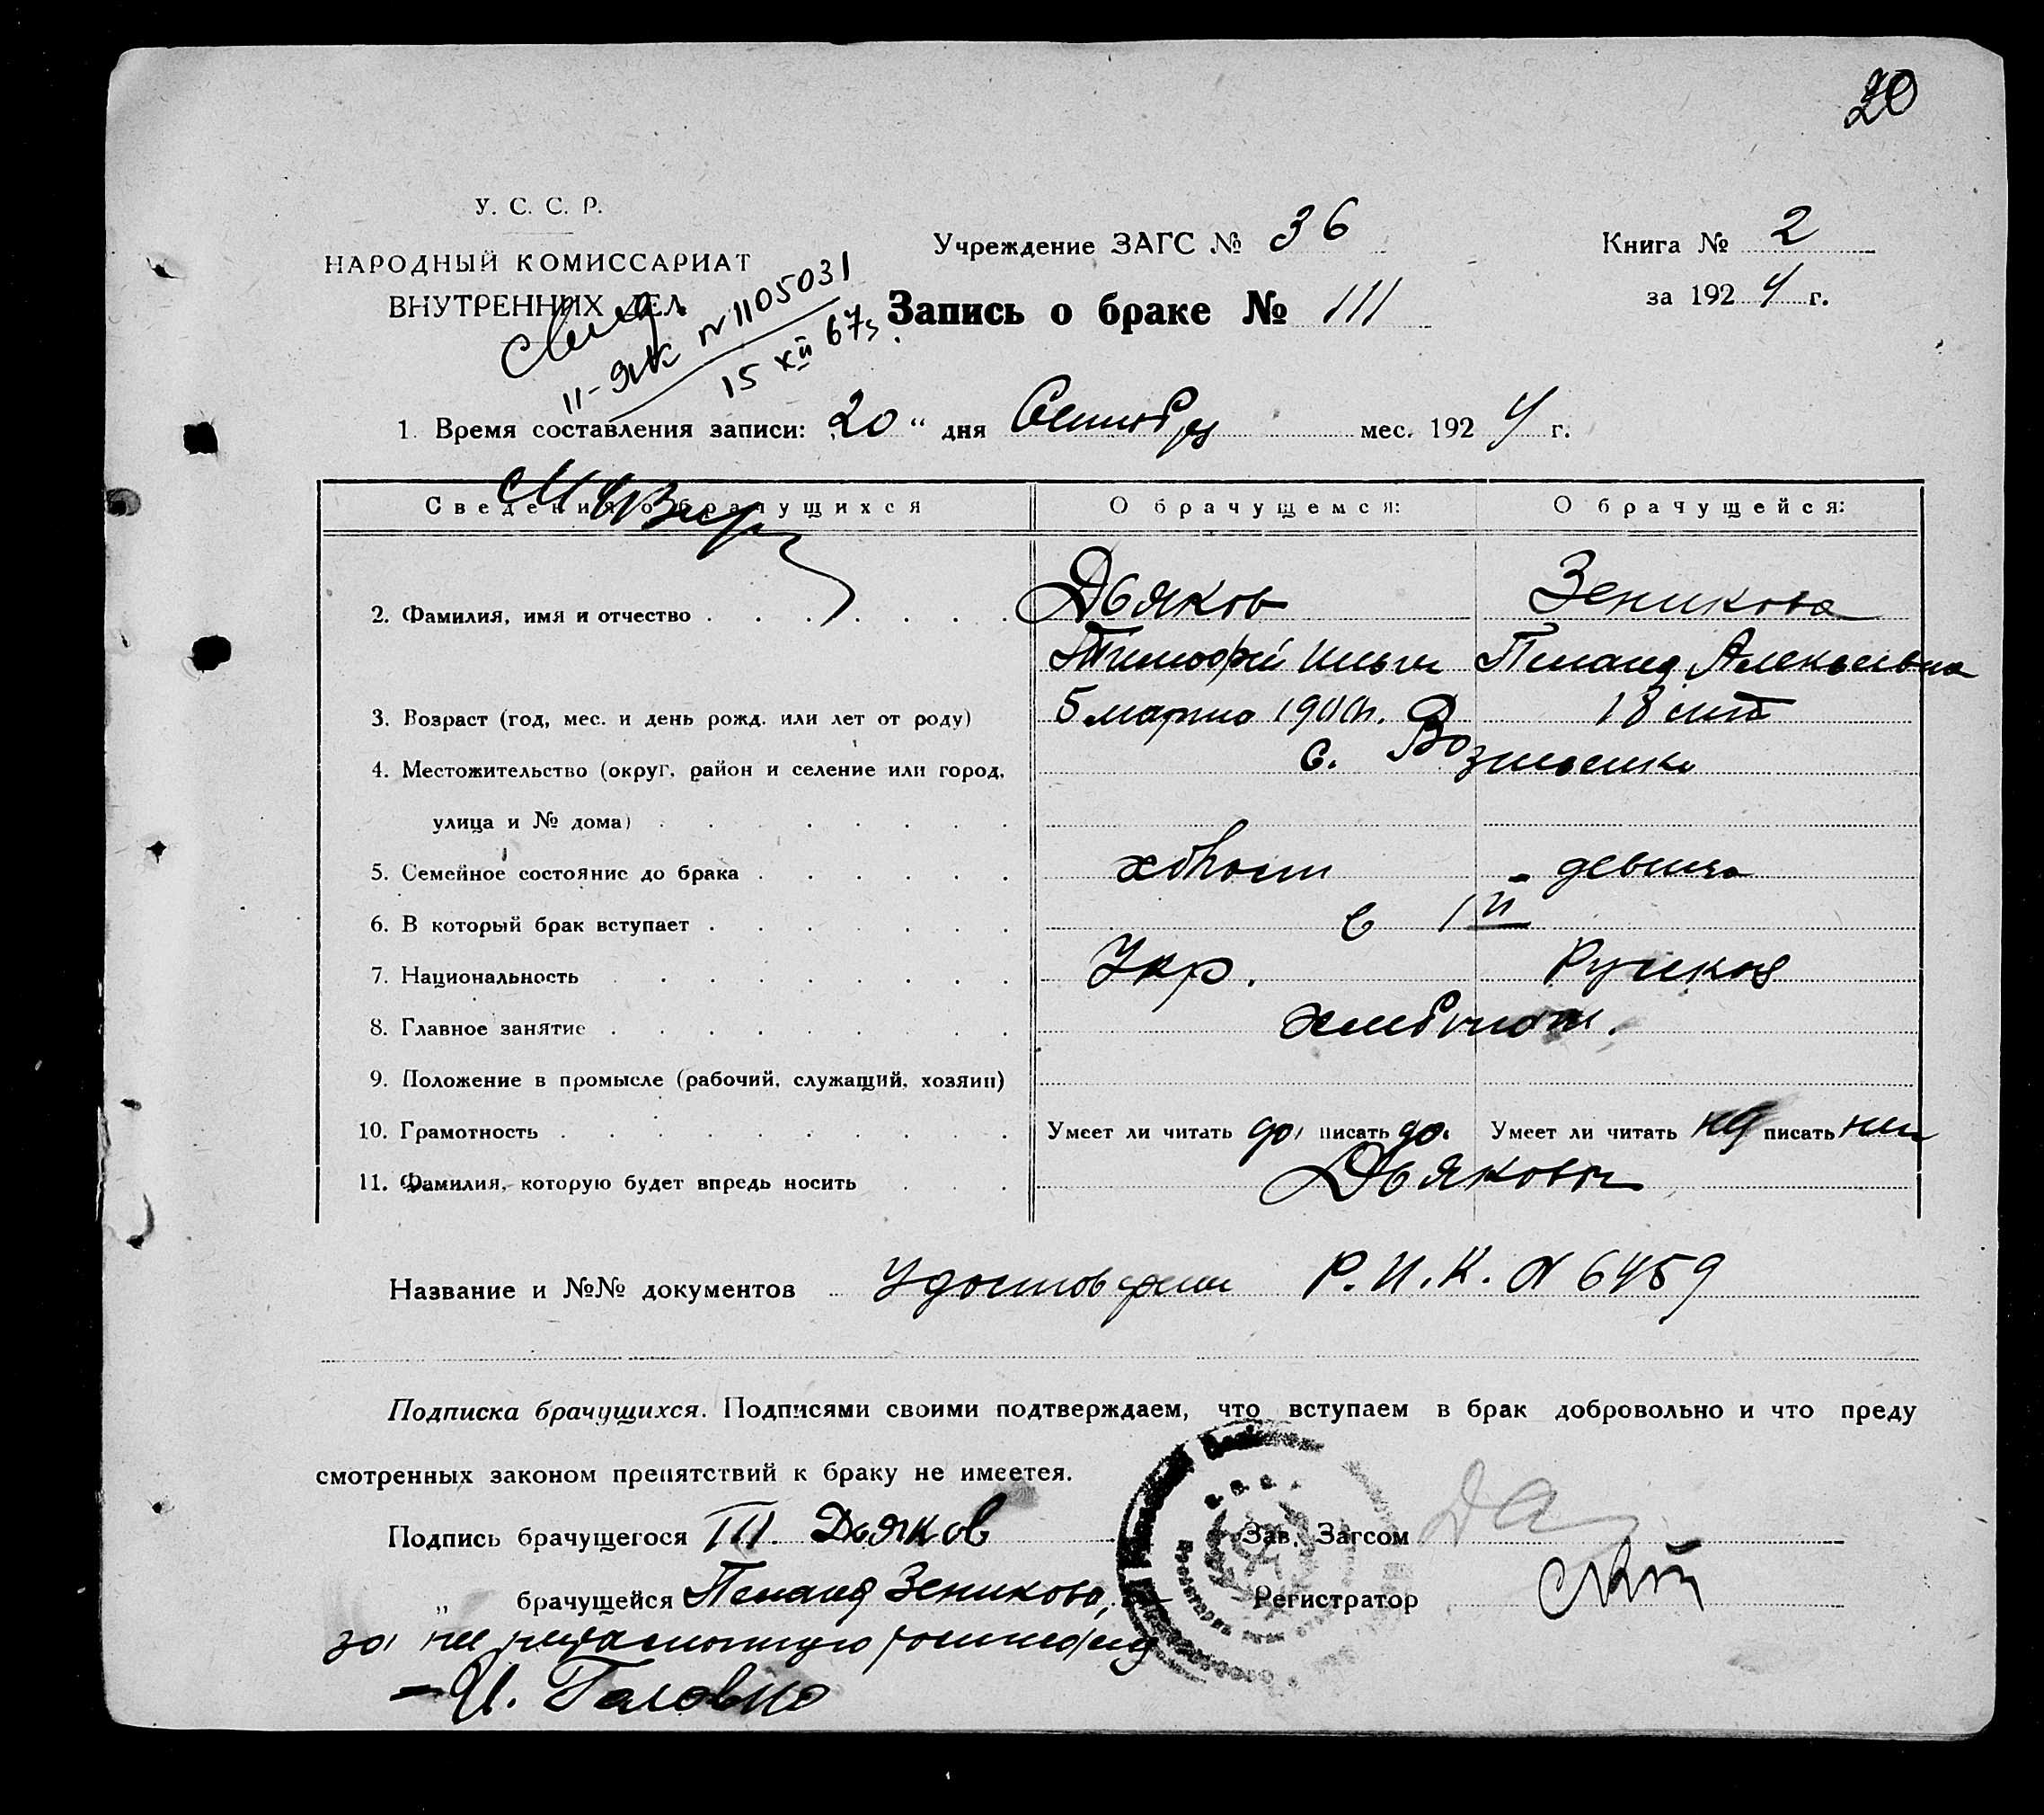 20
У. С. С. Р.
НАРОДНЫЙ КОМИССАРИАТ
ВНУТРЕННИХ ДЕЛ
Учреждение ЗАГС № 36
Книга № 2
за 1924 г.
Запись о браке № 111
II-ЯК № 1105031
15 XII 67г.
1. Время составления записи: 20 " дня Сентября мес. 1924 г.
Сведения о брачущихся О брачущемся: О брачущейся:
2. Фамилия, имя и отчество Дьяков Зеникова
Тимофей Ильич Пелагея Алексеевна
3. Возраст (год, мес. и день рожд. или лет от роду) 5 марта 18 лет
4. Местожительство (округ, район и селение или город, с.
улица и № дома)
5. Семейное состояние до брака холост девица
6. В который брак вступает в 1й
7. Национальность Укр. Русская
8. Главное занятие хлебопаш.
9. Положение в промысле (рабочий, служащий, хозяин)
10. Грамотность Умеет ли читать да писать да. Умеет ли читать писать
11. Фамилия, которую будет впредь носить Дьяковы
Название и №№ документов Удостоверен Р.И.К. № 6459
Подписка брачущихся. Подписями своими подтверждаем, что вступаем в брак добровольно и что преду
смотренных законом препятствий к браку не имеетея.
Подпись брачущегося Т. Дьяков
Зав. Загсом
„ брачущейся Зеникова,
Регистратор
за неграмотную
И. Головко